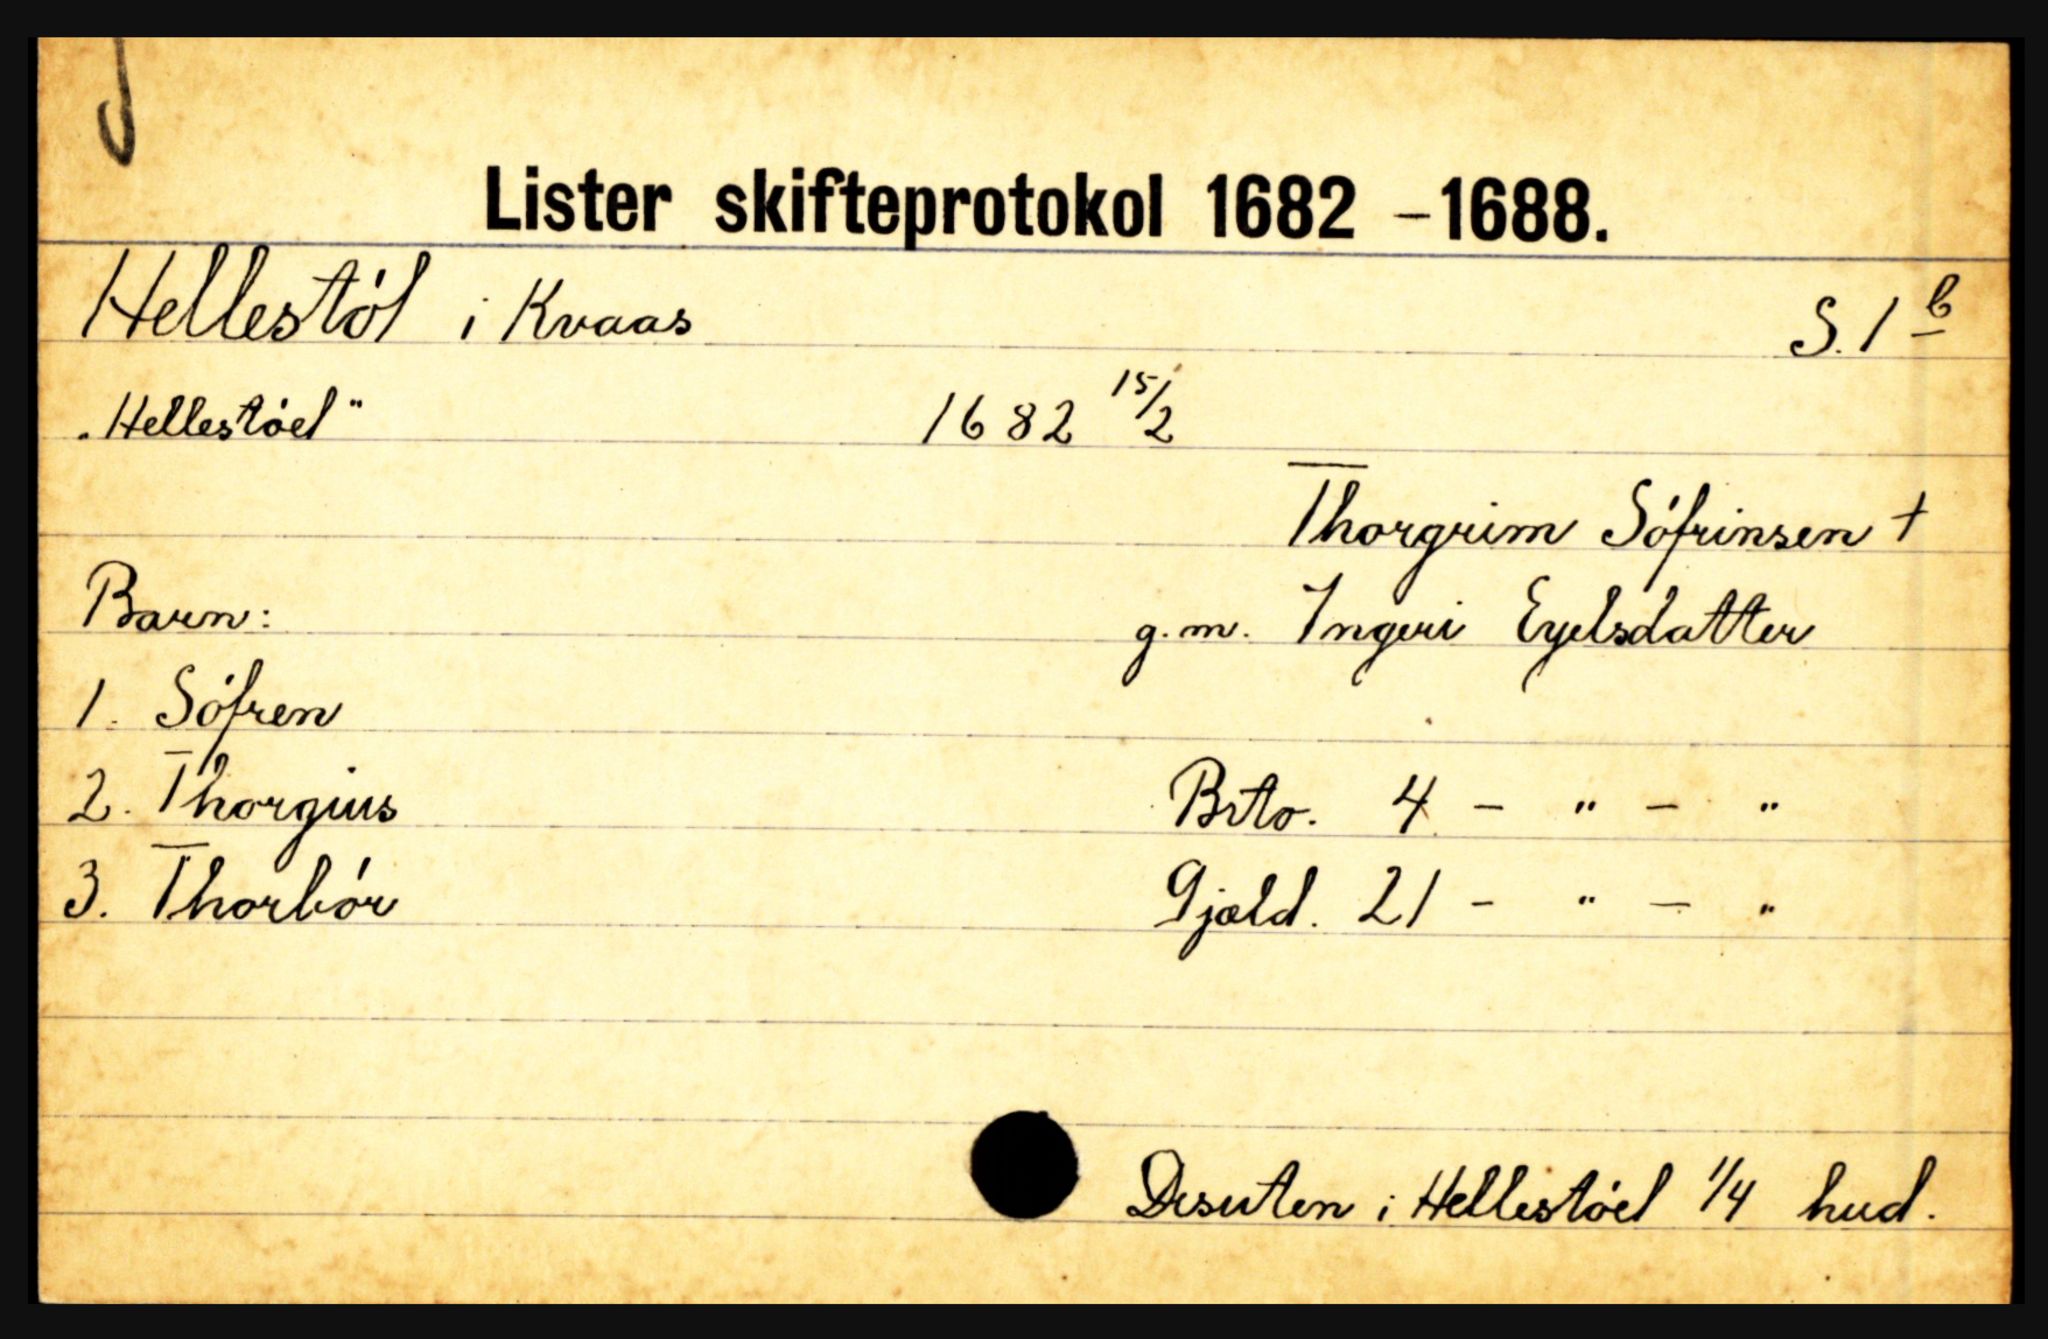 Lister skifteprotokol 1682 - 1688.
Hellestól i Kvaas S. 1 b
„Hellestóel" 1682 15/2
Thorgrim Sófrinsen +
Barn: g.m. Ingeri Eyelsdatter
1. Sófren
2. Thorgius Brto. 4 - " - "
3. Thorbór Gjæld. 21 - " - "
Desuten i Hellestóel 1/4 hud.